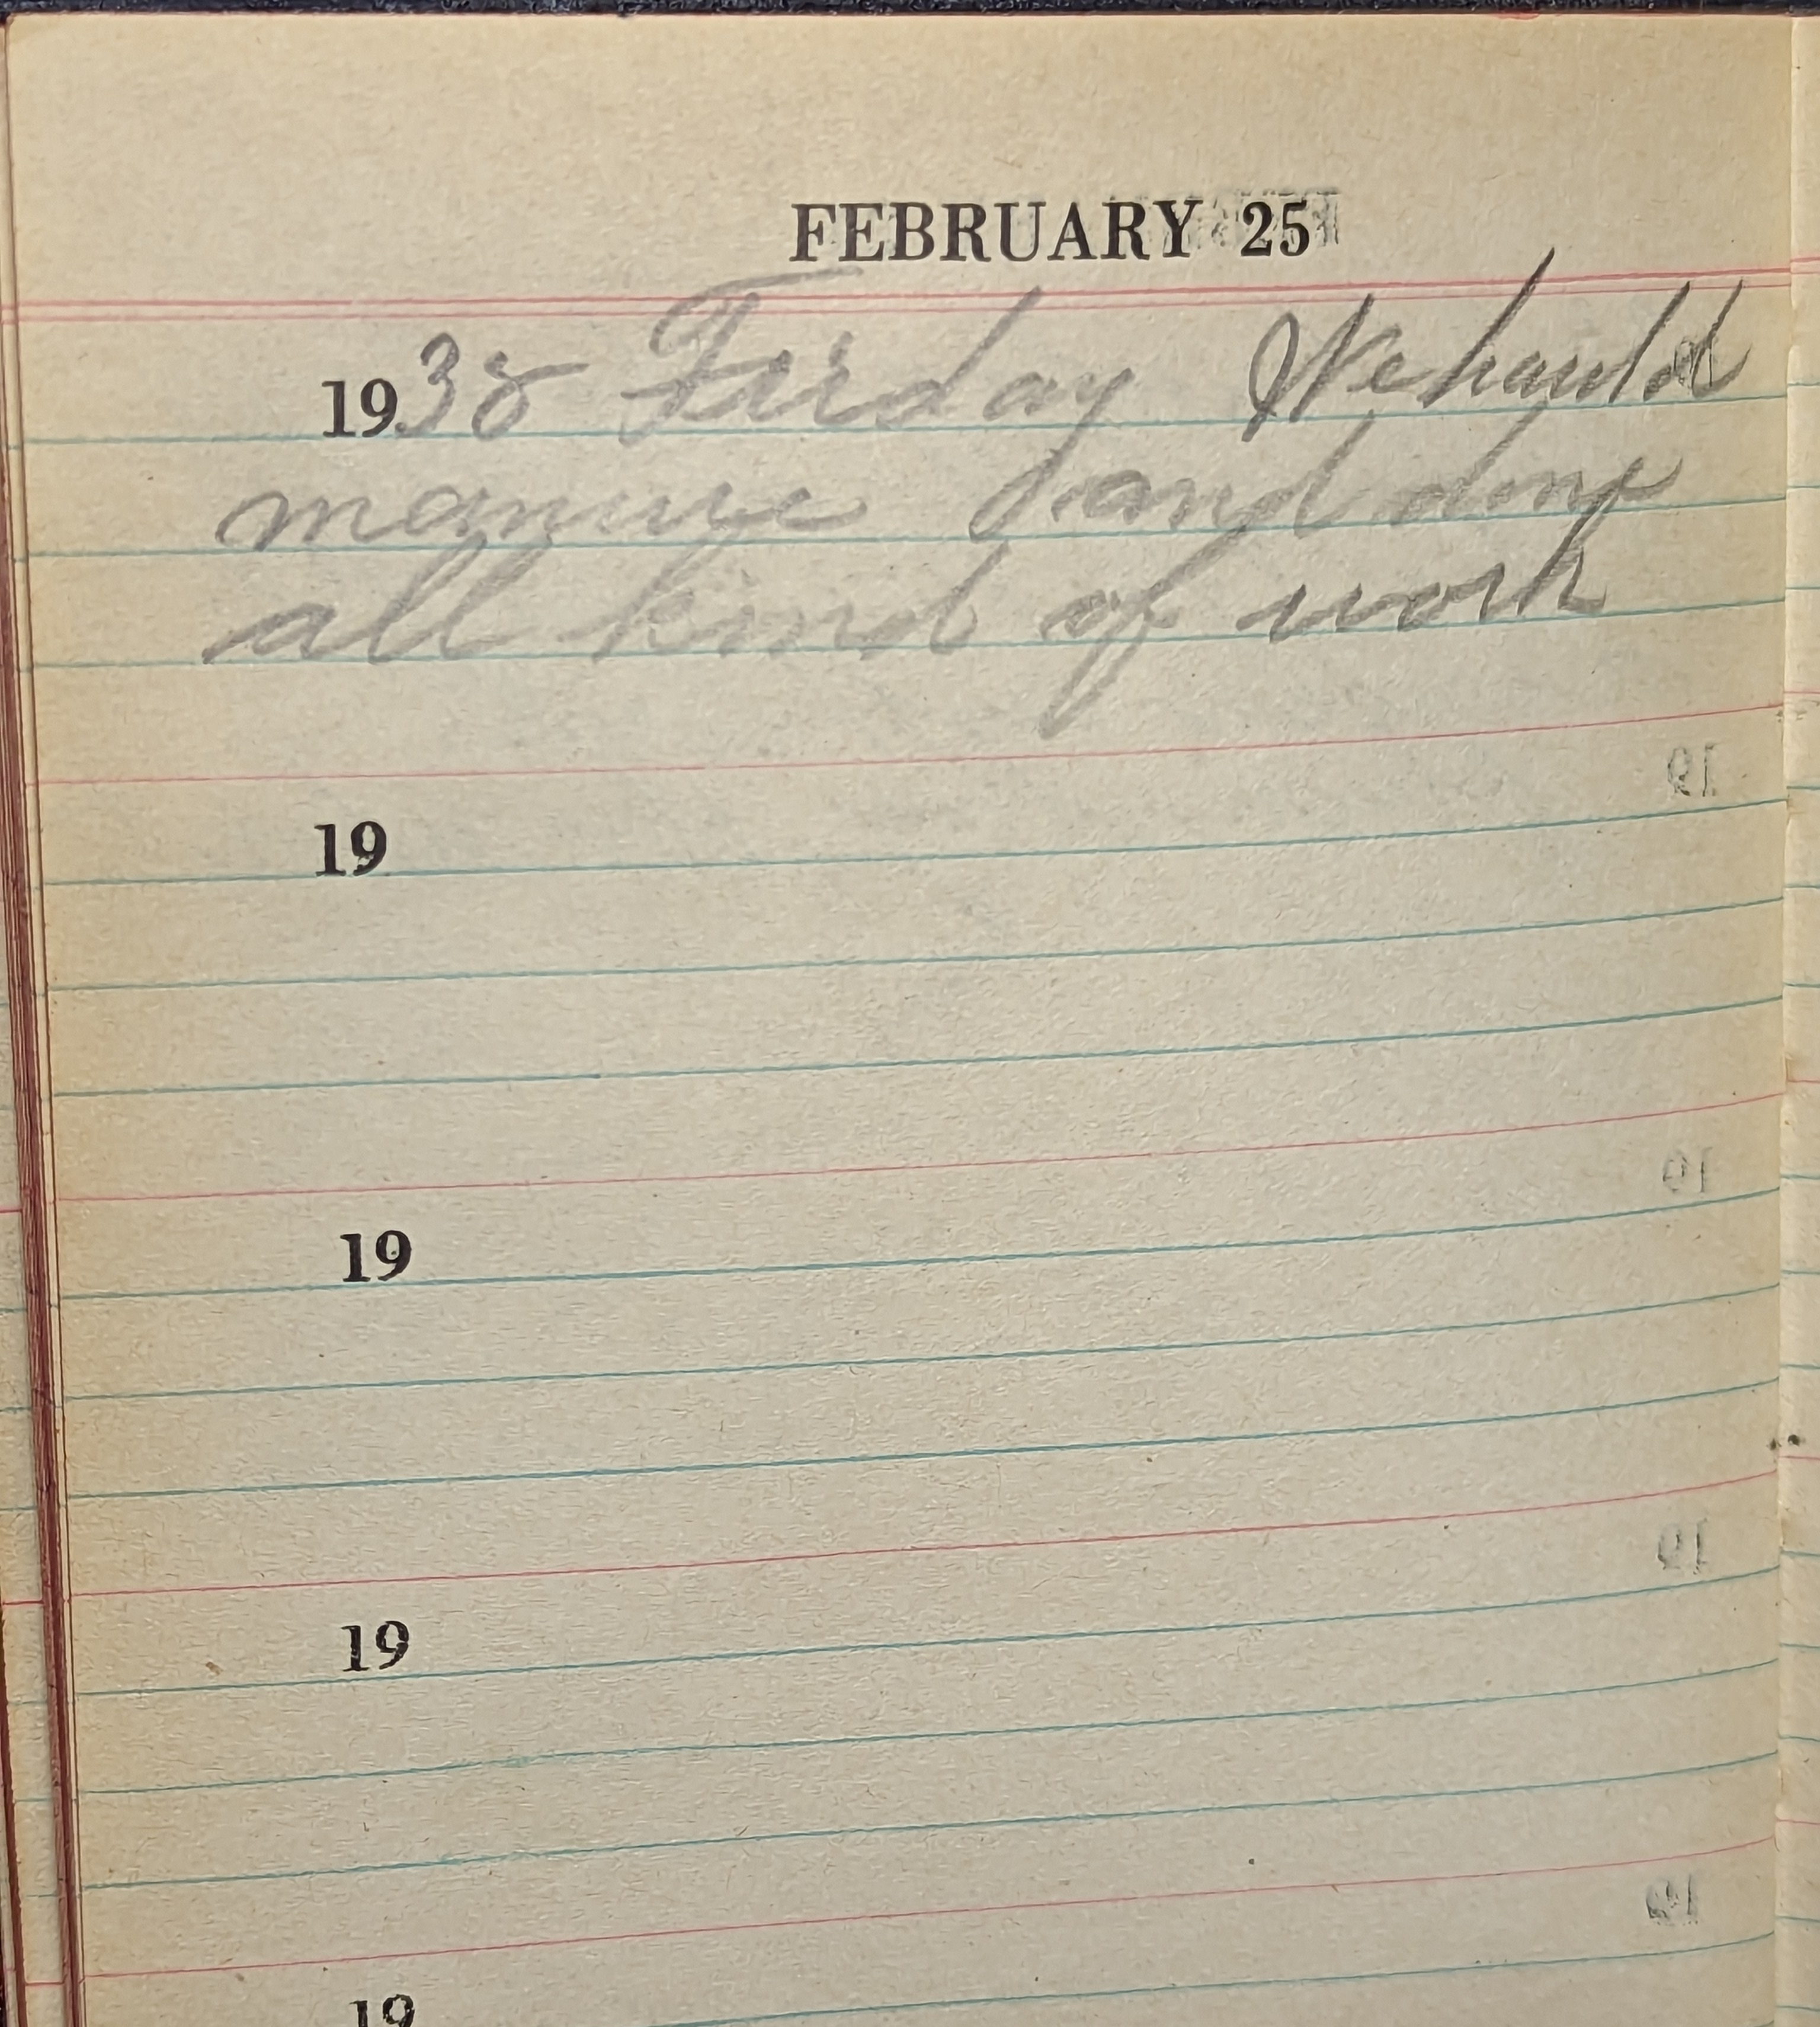 FEBRUARY 25
1938 Firday We hauld
manure and done
all kind of work
19
19
19
19